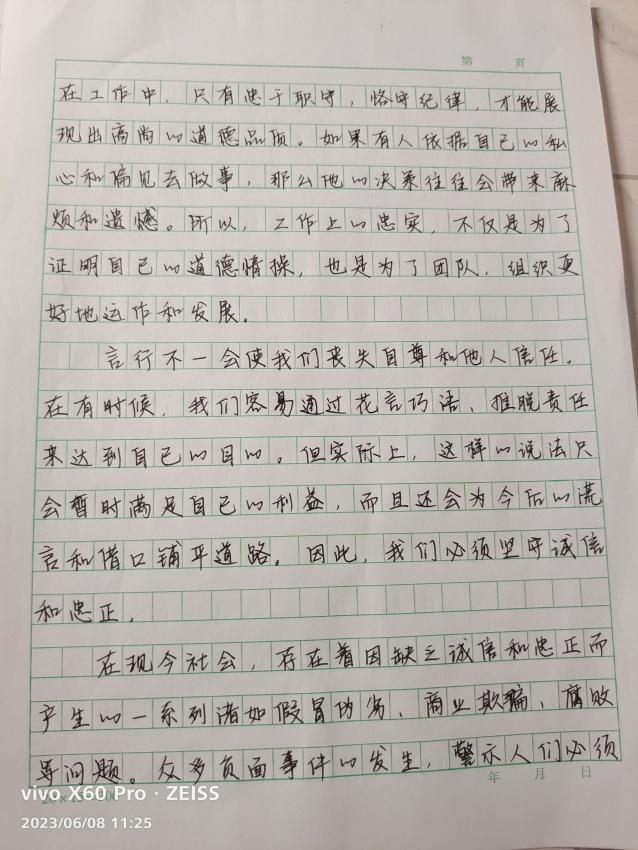 第 页
在工作中，只有忠于职守，恪守纪律，才能展
现出高尚的道德品质。如果有人依据自己的私
心和偏见去做事，那么他的决策往往会带来麻
烦和遗憾。所以，工作上的忠实，不仅是为了
证明自己的道德情操，也是为了团队、组织更
好地运作和发展。
言行不一会使我们丧失自尊和他人信任。
在有时候，我们容易通过花言巧语、推脱责任
来达到自己的目的。但实际上，这样的说法只
会暂时满足自己的利益，而且还会为今后的谎
言和借口铺平道路。因此，我们必须坚守诚信
和忠正。
在现今社会，存在着因缺乏诚信和忠正而
产生的一系列诸如假冒伪劣、商业欺骗、腐败
等问题。众多负面事件的发生，警示人们必须
年 月 日
vivo X60 Pro · ZEISS
2023/06/08 11:25